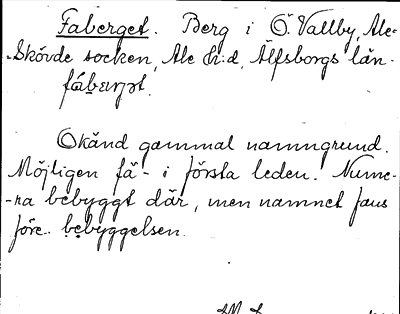 Faberget. Berg i Ö. Vallby, Ale-
-Skövde socken, Ale h:d, Älfsborgs län.
Okänd gammal namngrund.
Möjligen fä- i första leden. Nume-
-ra bebyggt där, men namnet fans
före bebyggelsen.